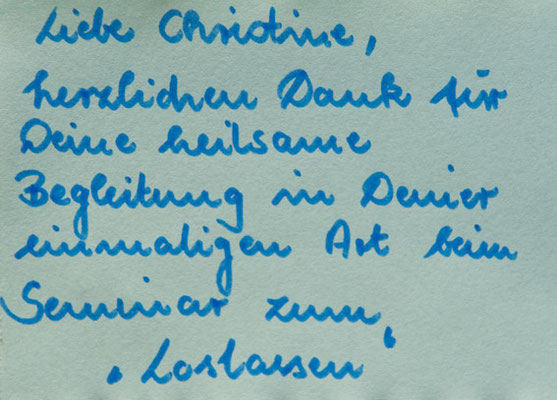 Liebe Christine,
herzlichen Dank für
Deine heilsame
Begleitung in Deiner
einmaligen Art beim
Seminar zum
"Loslassen"